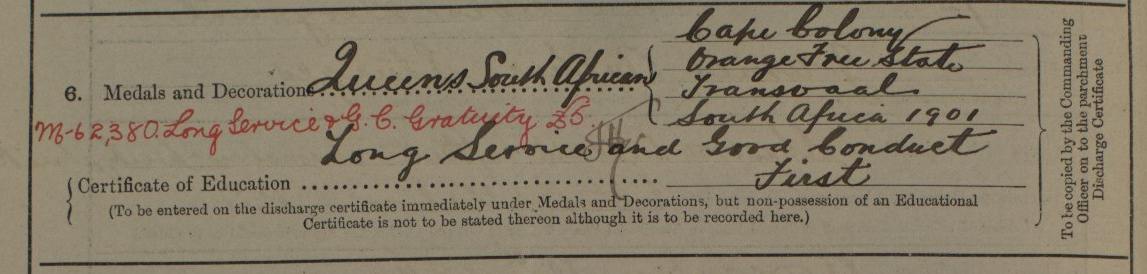 Cape Colony
Orange Free State
6. Medals and Decorations Queens South African { Transvaal
M-62,380. Long Service & G.C. Gratuity £5. South Africa 1901
Long Service and Good Conduct
Certificate of Education .......... First
(To be entered on the discharge certificate immediately under Medals and Decorations, but non-possession of an Educational
Certificate is not to be stated thereon although it is to be recorded here.)
To be copied by the Commanding
Officer on to the parchment
Discharge Certificate